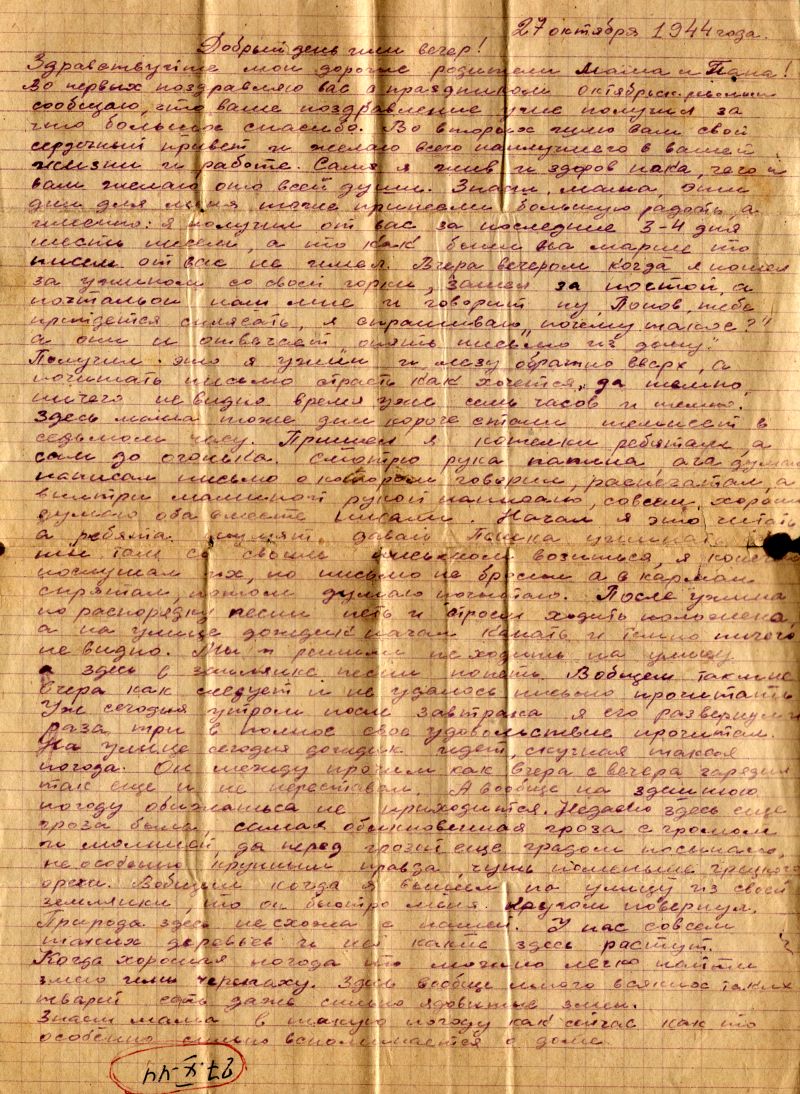 27 октября 1944 года.
Добрый день или вечер!
Здравствуйте мои дорогие родители Мама и Папа!
Во первых поздравляю вас с праздником октябрьск.
сообщаю, что ваше поздравление уже получил за
что большое спасибо. Во вторых шлю вам свой
сердечный привет и желаю всего наилучшего в вашей
жизни и работе. Сам я жив и здоров пока, чего и
вам желаю ото всей души. Знаеш, мама, эти
дни для меня также принесли большую радость, а
именно: я получил от вас за последние 3-4 дня
шесть писем, а то как были на марше то
писем от вас не имел. Вчера вечером когда я пошел
за ужином со своей горки, зашел за почтой, а
почтальон нам мне и говорит ну, Попов, тебе
придется сплясать, я спрашиваю „почему такое?"
а он и отвечает опять письмо из дому".
Получил это я ужин и лезу обратно вверх, а
почитать письмо страсть как хочется, да темно,
ничего не видно время уже семь часов и темно.
Здесь мама тоже дни короче стали темнеет в
седьмом часу. Пришел я котелки ребятам, а
сам до огонька. Смотрю рука папина, ага думаю
написал письмо о котором говорил, распечатал, а
внутри мамин рукой написано, совсем хорошо
думаю оба вместе писали. Начал я это читать
а ребята шумят давай Пашка ужинать
там со своим письмом возиться, я конечно
послушал их, но письмо не бросил а в карман
спрятал, потом думаю почитаю. После ужина
по распорядку песни петь и строем ходить положено,
а на улице дождик начал капать и темно ничего
не видно. Мы и решили не ходить на улицу
а здесь в землянке песни попеть. Вобщем так мне
вчера как следует и не удалось письмо прочитать
Уж сегодня утром после завтрака я его развернул и
раза три в полное свое удовольствие прочитал.
На улице сегодня дождик идет, скучная такая
погода. Он между прочим как вчера с вечера зарядил
так еще и не переставал. А вообще на здешнюю
погоду обижаться не приходится. Недавно здесь еще
гроза была, самая обыкновенная гроза с громом
и молнией, да перед грозой еще градом посыпало,
не особенно крупным правда, чуть поменьше грецкого
ореха. Вобщем когда я вышел на улицу из своей
землянки, то он быстро меня кругом повернул.
Природа здесь не схожа с нашей. У нас совсем
таких деревьев и нет какие здесь растут.
Когда хорошая погода то можно легко найти
змею или черепаху. Здесь вообще много всяких таких
тварей есть даже сильно ядовитые змеи.
Знаеш мама в такую погоду как сейчас как то
особенно сильно вспоминается о доме.
27.X-44